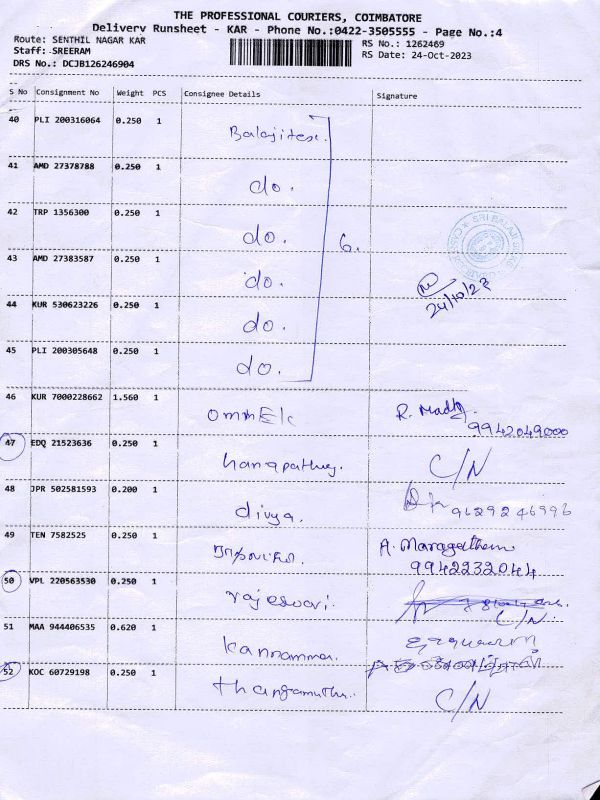 THE PROFESSIONAL COURIERS, COIMBATORE
Delivery Runsheet - KAR - Phone No.:0422-3505555 - Page No.:4
Route: SENTHIL NAGAR KAR
RS No.: 1262469
Staff: SREERAM
RS Date: 24-Oct-2023
DRS No.: DCJB126246904
S No Consignment No Weight PCS Consignee Details Signature
40 PLI 200316064 0.250 1
41 AMD 27378788 0.250 1 do.
42 TRP 1356300 0.250 1 do. 6.
SRI BALAJI
43 AMD 27383587 0.250 1 do.
24/10/23
44 KUR 530623226 0.250 1 do.
45 PLI 200305648 0.250 1 do.
46 KUR 7000228662 1.560 1 R. Madhy.
9942049000
47 EDQ 21523636 0.250 1 C/N
48 JPR 502581593 0.200 1 divya. 9629246996
49 TEN 7582525 0.250 1 A. Maragatham
9942232044
50 VPL 220563530 0.250 1 rajeswari. C/N.
51 MAA 944406535 0.620 1 kannammal
52 KOC 60729198 0.250 1 thangamuthu. C/N